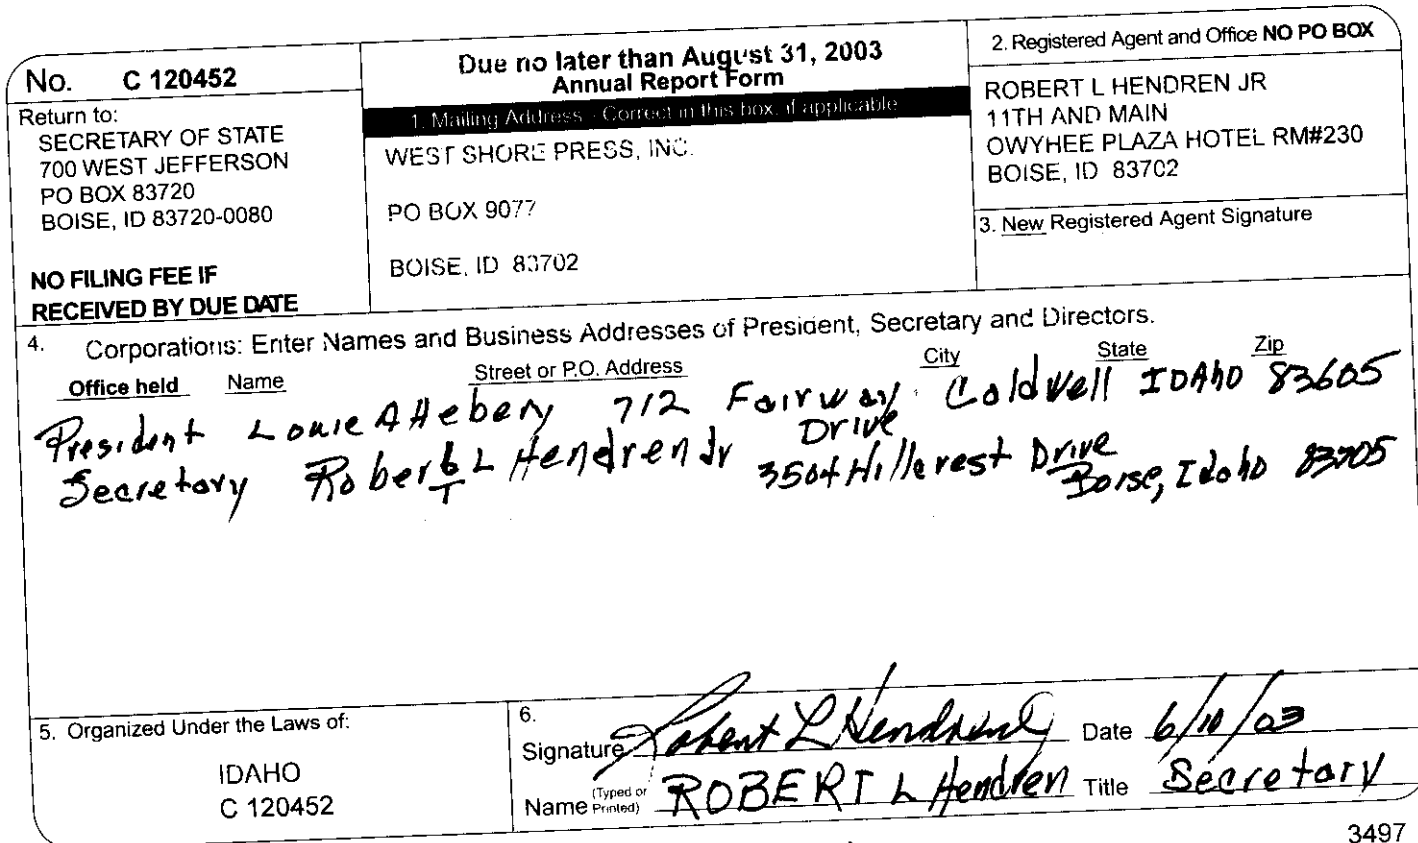 No. C 120452
Return to:
SECRETARY OF STATE
700 WEST JEFFERSON
PO BOX 83720
BOISE, ID 83720-0080
NO FILING FEE IF
RECEIVED BY DUE DATE
Due no later than August 31, 2003
Annual Report Form
1. Mailing Address - Correct in this box, if applicable
WEST SHORE PRESS, INC.
PO BOX 9077
BOISE, ID 83702
2. Registered Agent and Office NO PO BOX
ROBERT L HENDREN JR
11TH AND MAIN
OWYHEE PLAZA HOTEL RM#230
BOISE, ID 83702
3. New Registered Agent Signature
4. Corporations: Enter Names and Business Addresses of President, Secretary and Directors.
Office held Name Street or P.O. Address City State Zip
President Louie Attebery 712 Fairway Drive Caldwell IDAHO 83605
Secretary Robert L Hendren Jr 3504 Hillcrest Drive Boise, Idaho 83705
5. Organized Under the Laws of:
IDAHO
C 120452
6.
Signature Robert L Hendren Jr Date 6/10/03
Name (Typed or Printed) ROBERT L Hendren Title Secretary
3497